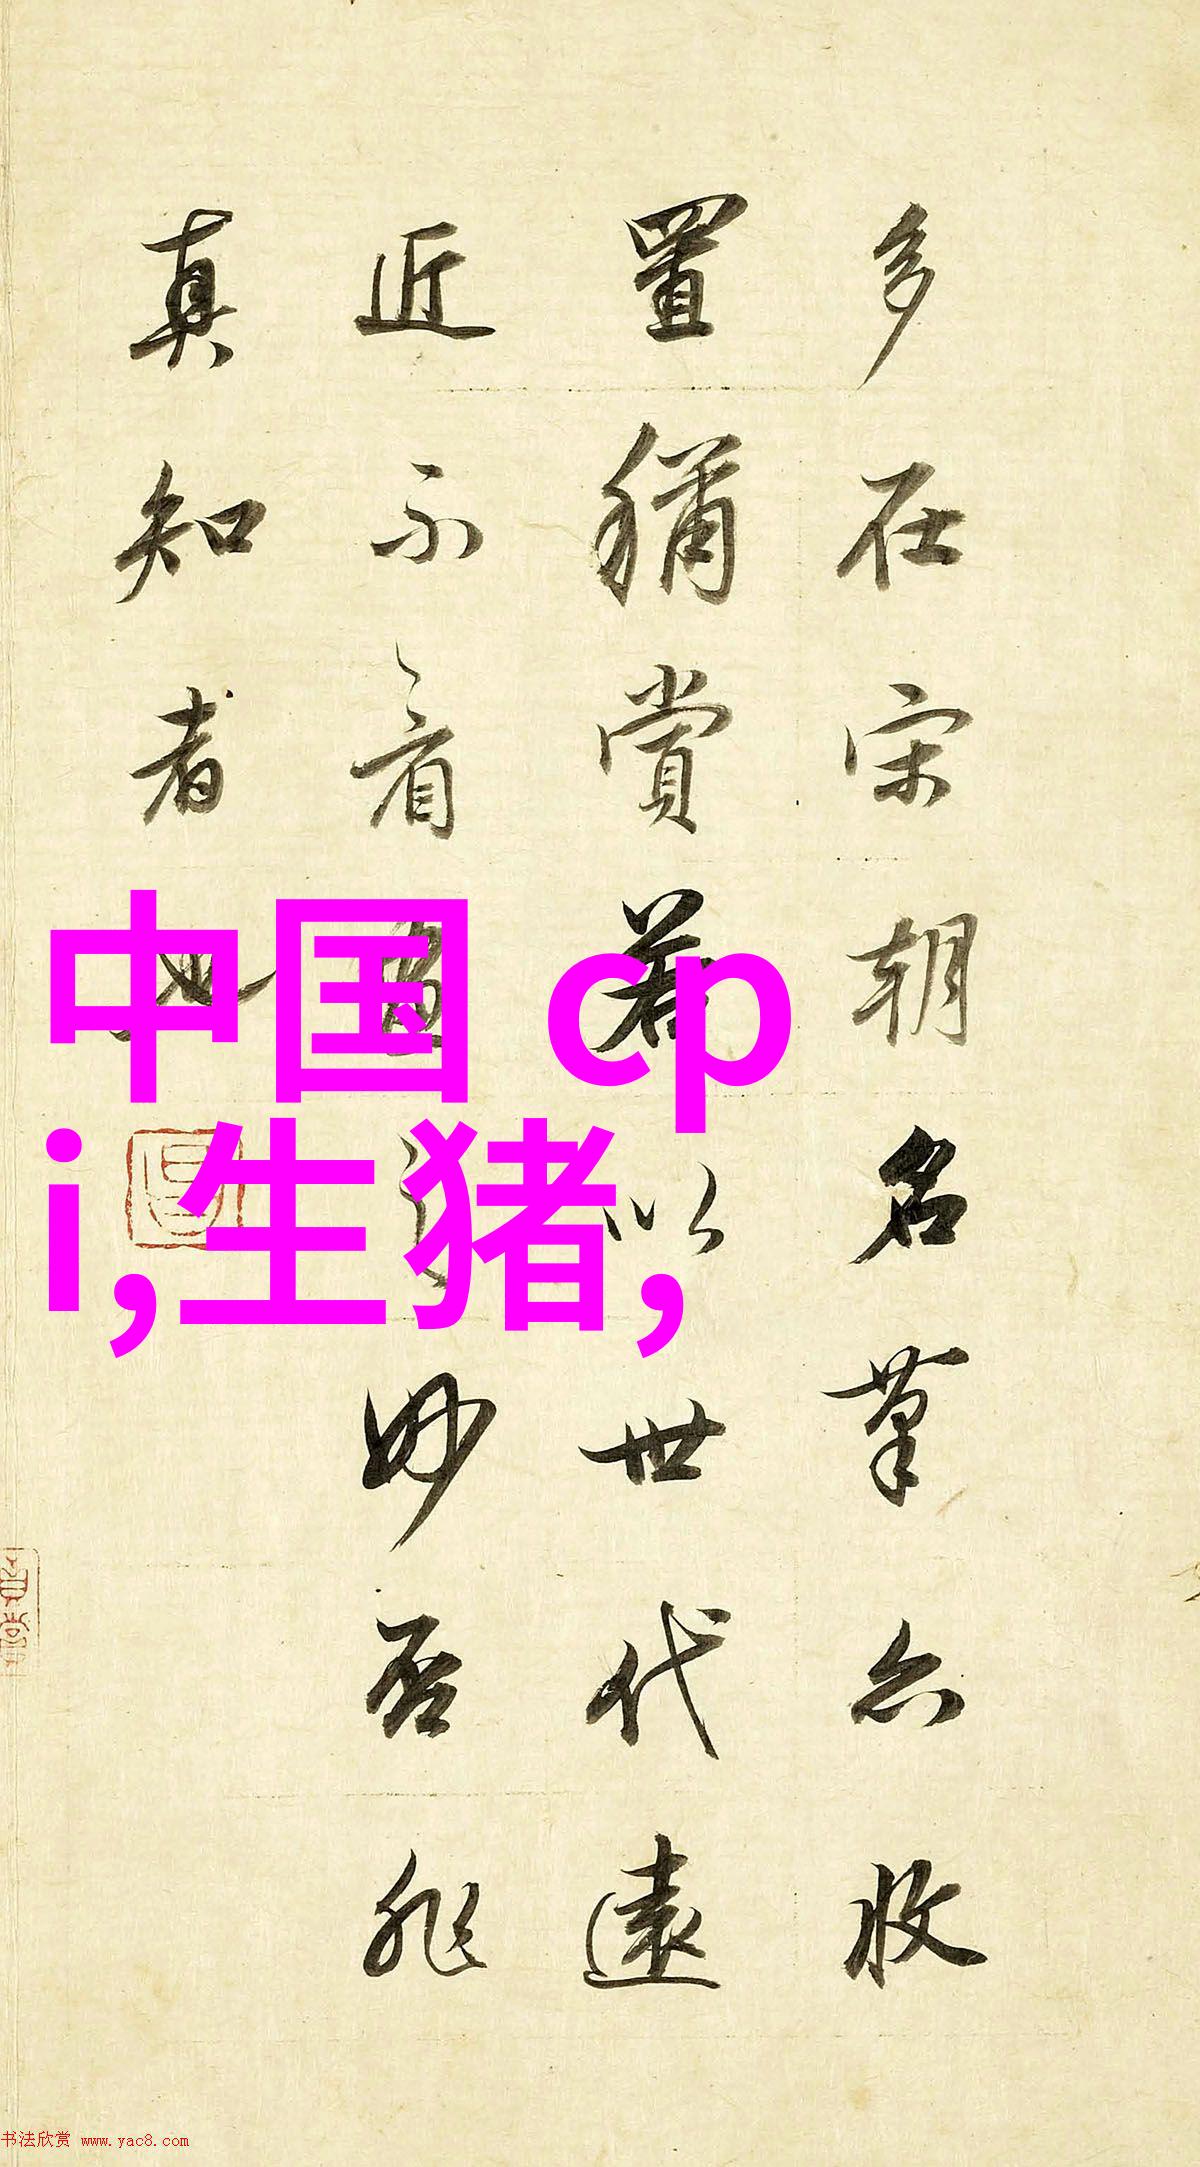 多在宋朝名笔亦收
置猶賞若以世代遠
近不看畫之妙否非
真知者也
中国 cp
i,生猪,
书法欣赏 www.yac8.com